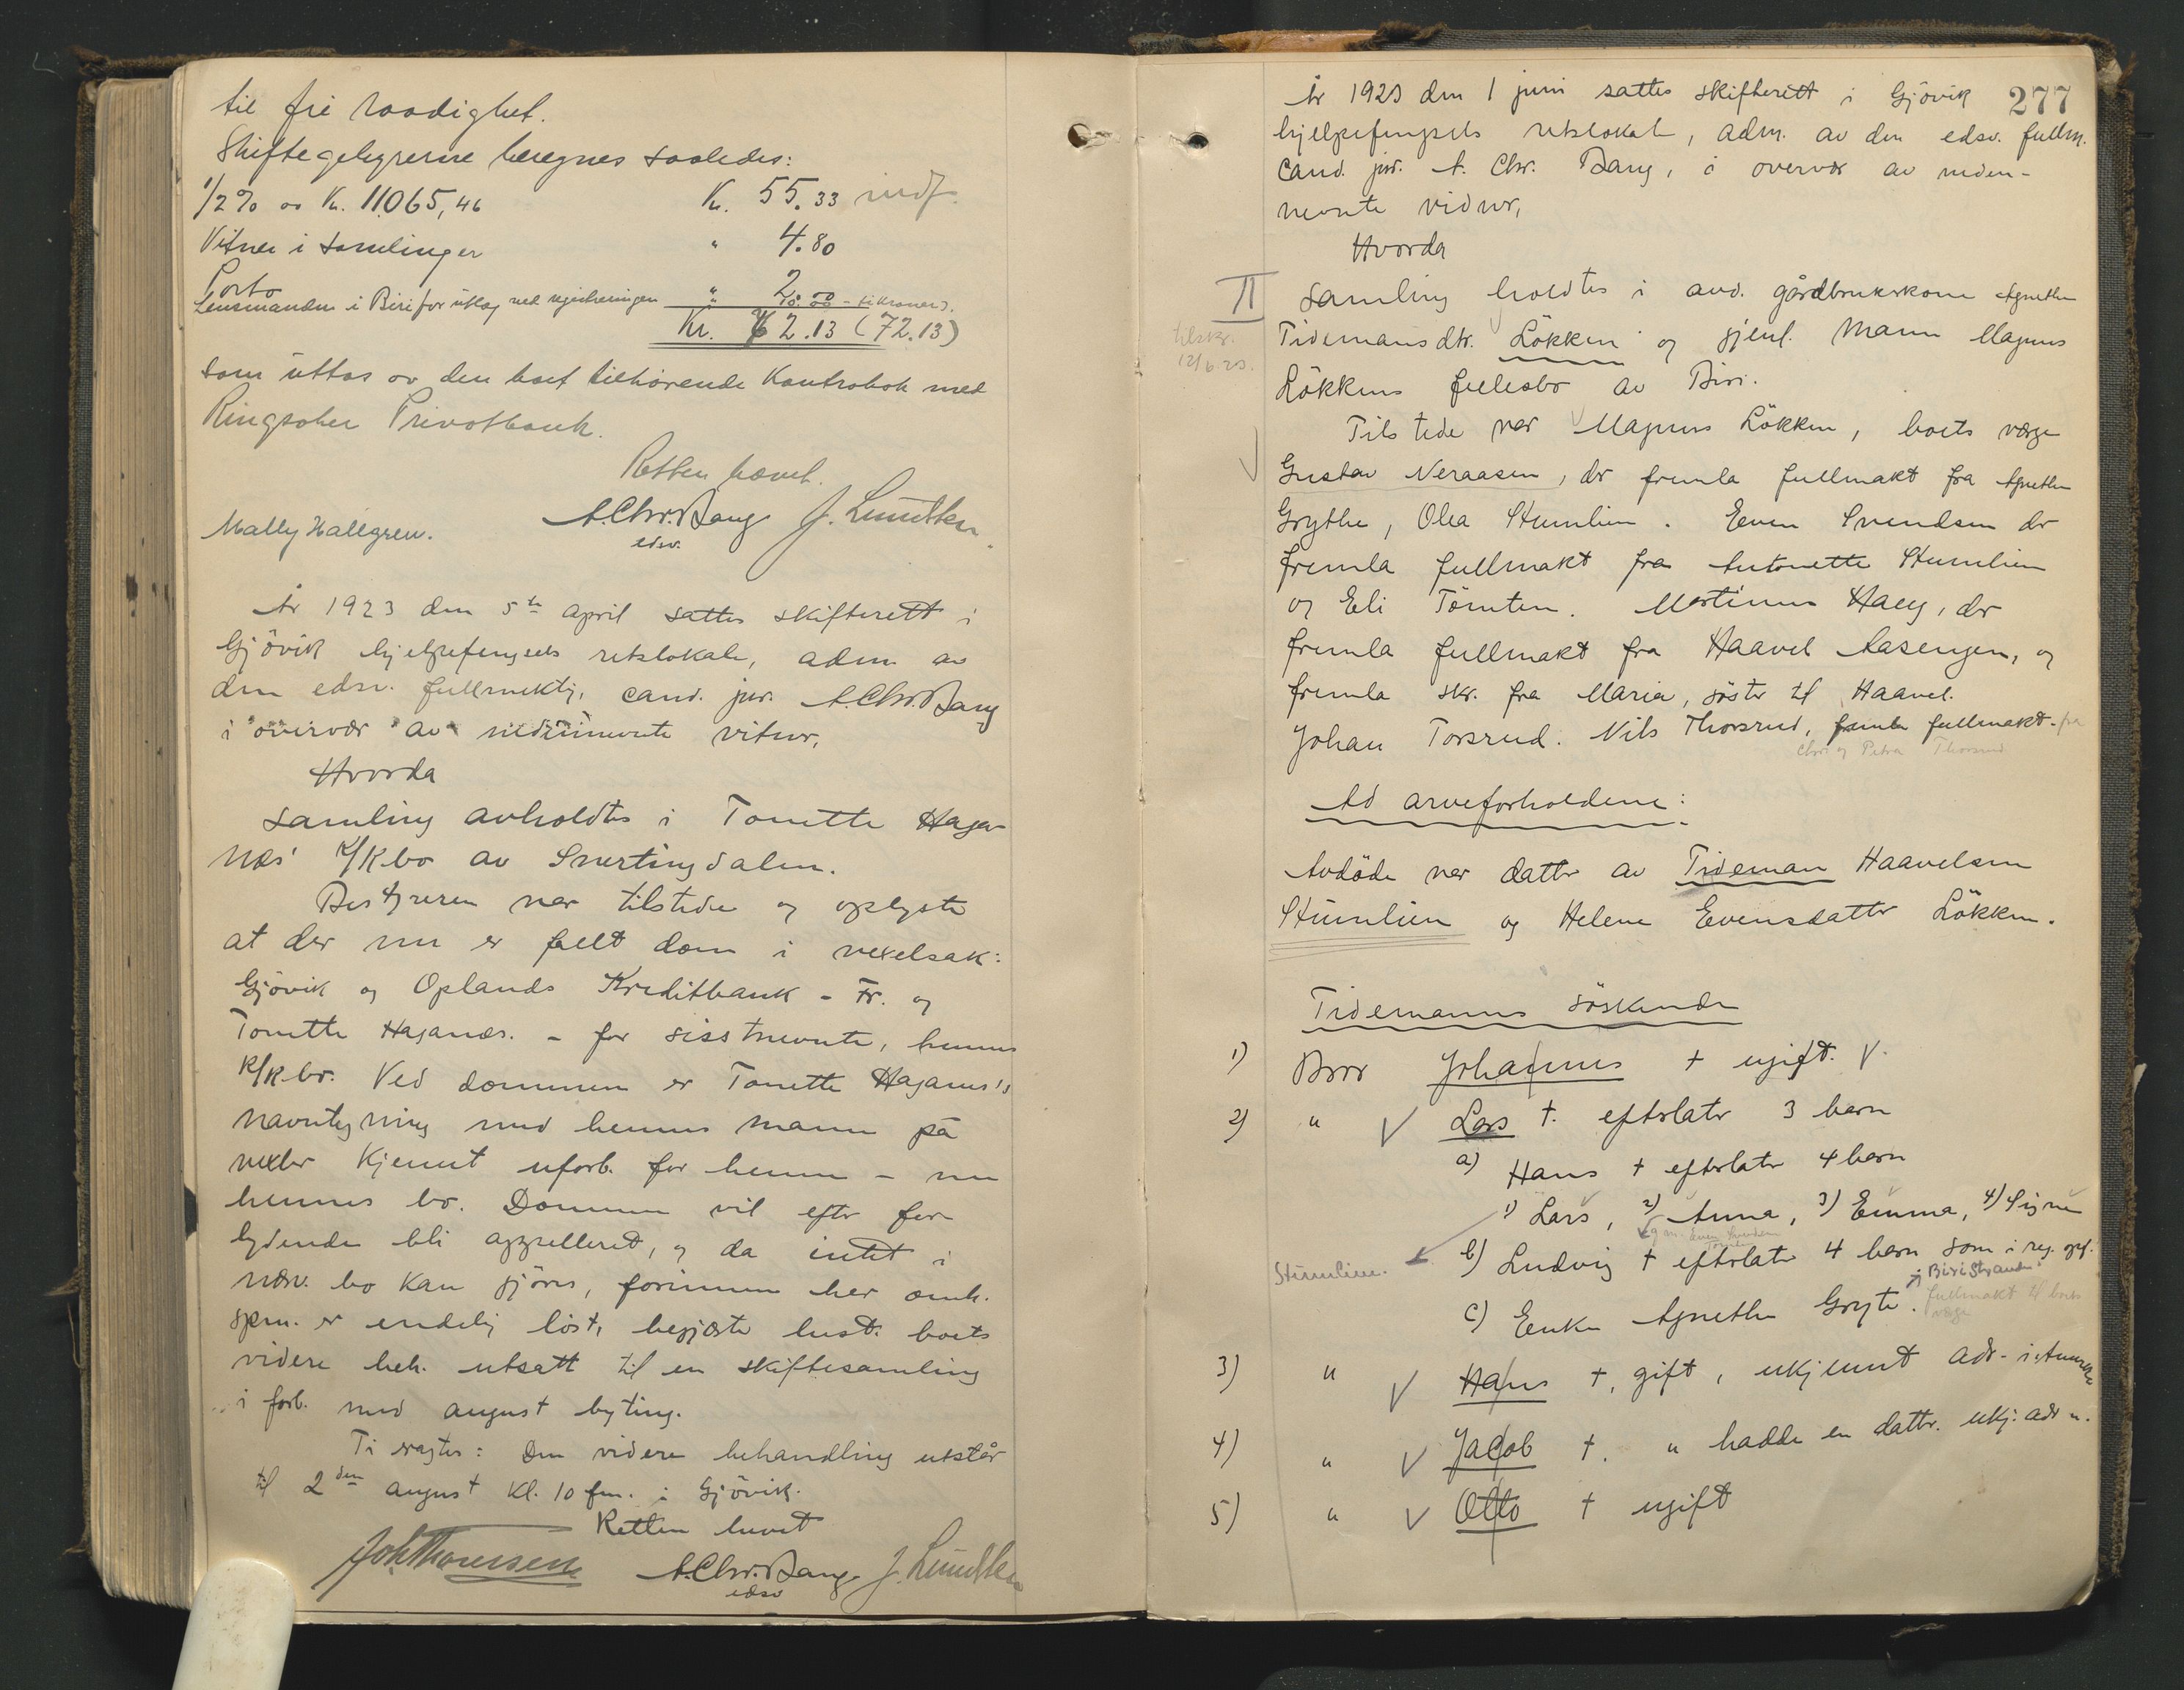 til fri raadighet.
Skiftegebyrerne beregnes saaledes:
1/2 % av Kr. 11065,46 Kr. 55.33 indf.
Vitner i samlinger " 4.80
Porto " 2.00
Lensmanden i Biri for utlæg ved registreringen " 10.00 - ti kroner).
Kr. 62.13 (72.13)
som uttas av den boet tilhørende Kontrabok med
Ringsaker Privatbank.
Retten hævet.
Mally Hallgren. A. Chr. Bang J. Lundsten.
edsv.
År 1923 den 5te april sattes skifterett i
Gjövik hjelpefengsels retslokale, adm. av
den edsv. fullmektig, cand. jur. A. Chr. Bang
i overvær av nedennevnte vitner,
Hvorda
samling avholdtes i Tonette Haga-
næs' k/k bo av Snertingdalen.
Bestyreren var tilstede og oplyste
at der nu er felt dom i vexelsak:
Gjövik og Oplands Kreditbank - Fr. og
Tonette Haganæs. - for sisstnevnte, hennes
k/k bo. Ved dommen er Tonette Haganæs's
navntegning med hennes mann på
vexler kjennt uforb. for henne - nu
hennes bo. Dommen vil efter for-
lydende bli appelleret, og da intet i
nærv. bo kan gjöres, forinnen her omh.
spm. er endelig löst, begjærte best. boets
videre beh. utsatt til en skiftesamling
i forb. med august byting.
Ti vagtes: Den videre behandling utstår
til 2den august kl. 10 fm. i Gjövik.
Retten hevet
Joh Thomssen A. Chr. Bang J. Lundsten
edsv
277
År 1923 den 1 juni sattes skifterett i Gjövik
hjelpefengsels retslokale, adm. av den edsv. fullm.
cand. jur. A. Chr. Bang, i overvær av neden-
nevnte vidner,
Hvorda
II samling holdtes i avd. gårdbrukerkone Agnethe
tilskr. Tidemansdtr. Lökken og gjenl. mann Magnus
12/6 23. Lökkens fellesbo av Biri.
Tilstede var Magnus Lökken, boets værge
Gustav Neraasen, der fremla fullmakt fra Agnethe
Grythe, Olea Stumlien. Even Svendsen der
fremla fullmakt fra Antonette Stumlien
og Eli Tömten. Martinus Haug, der
fremla fullmakt fra Haavel Aasengen, og
fremla skr. fra Maria, söster til Haavel.
Johan Torsrud. Nils Thorsrud, fremla fullmakt fra
Chr. og Petra Thorsrud
Ad arveforholdene:
Avdöde var datter av Tideman Haavelsen
Stumlien og Helene Evensdatter Lökken.
Tidemanns söskende
1) Bror Johannes † ugift.
2) " Lars †. efterlater 3 barn
a) Hans † efterlater 4 barn
1) Lars, 2) Anna, 3) Emma, 4) Signe
g.m. Even Svendsen
Stumlien. b) Ludvig † efterlate 4 barn som i reg. opf.
Biristranden
c) Enke Agnethe Gryte. fullmakt til boets
værge
3) " Hans †, gift, ukjennt adr. i Amerika
4) " Jacob †. " hadde en datter. ukj. adr. ".
5) " Otto † ugift